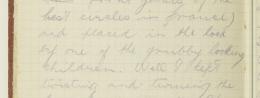 best circles in France)
and placed in the look
of one of the grubby looking
children. Well I left
twisting and turning the